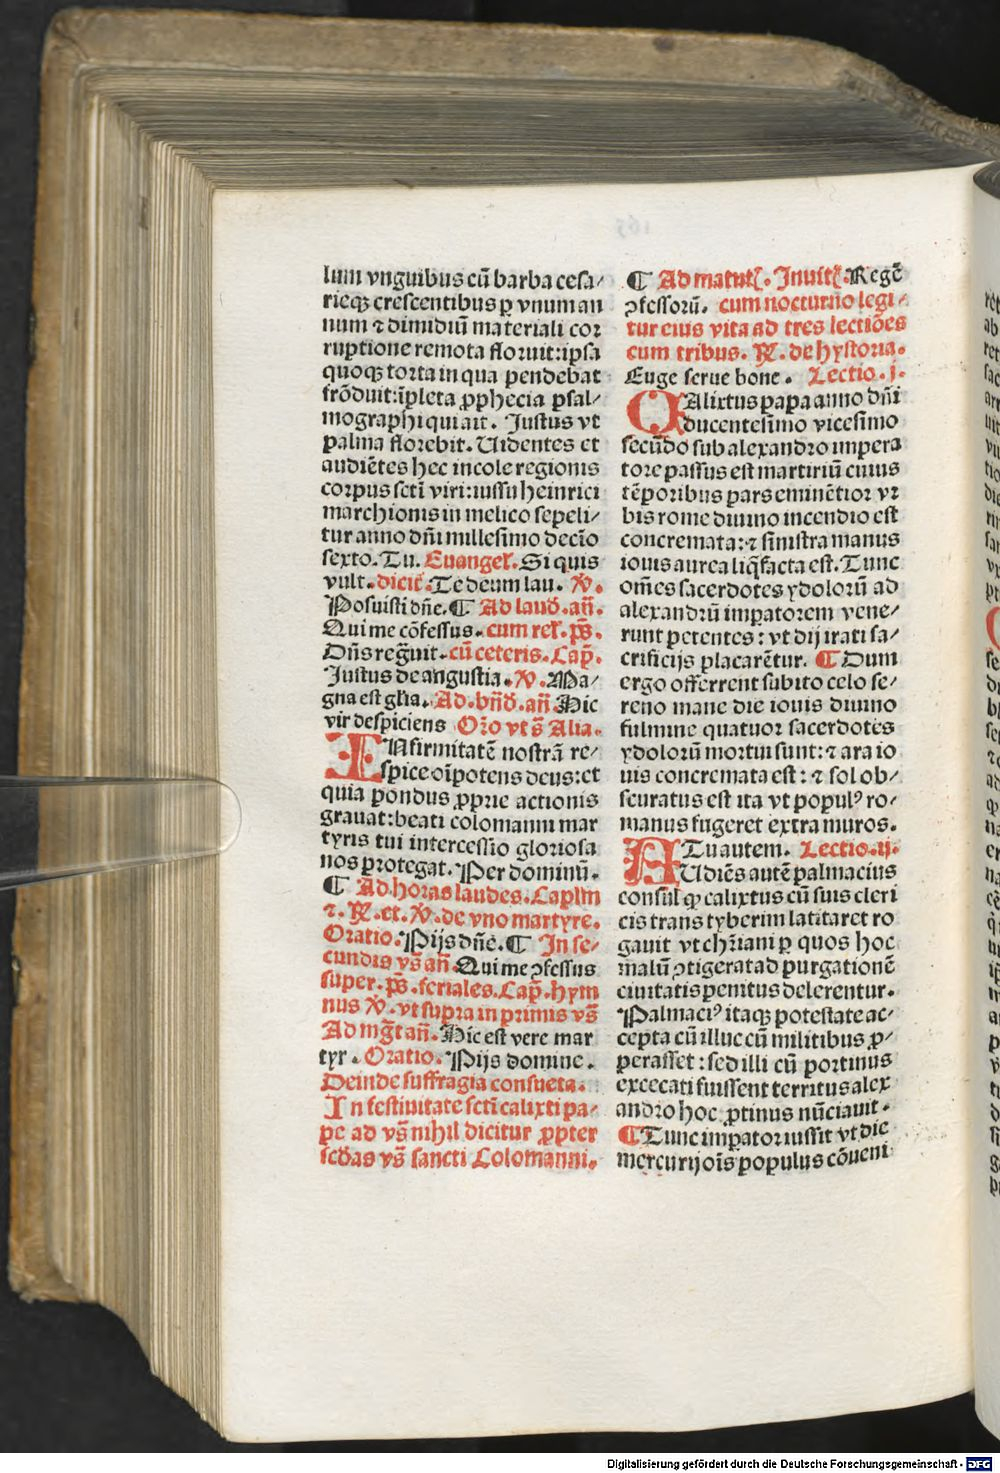 lum vnguibus cū barba cesa⸗
rieqꝫ crescentibus ꝑ vnum an
num ⁊ dimidiū materiali cor
ruptione remota floruit: ipsa
quoqꝫ torta in qua pendebat
frōduit: īpleta ꝓphecia psal⸗
mographi qui ait. Justus vt
palma florebit. Uidentes et
audiētes hec incole regionis
corpus scti viri: iussu heinrici
marchionis in melico sepeli⸗
tur anno dn̄i millesimo decīo
sexto. Tu. Euangeł. Si quis
vult. dicit̄. Te deum lau. ℣.
Posuisti dn̄e. ¶ Ad laud̄. an̄.
Qui me cōfessus. cum rel̄. ps̄.
Dn̄s reḡuit. cū ceteris. Cap̄.
Justus de angustia. ℣. Ma⸗
gna est gl̄ia. Ad. bn̄d̄. an̄ Hic
vir despiciens Or̄o vt s̄ Alia.
INfirmitatē nostrā re⸗
spice oīpotens deus: et
quia pondus ꝓprie actionis
grauat: beati colomanni mar
tyris tui intercessio gloriosa
nos ꝓtegat. Per dominū.
¶ Ad horas laudes. Caplm
⁊. ℟. et. ℣. de vno martyre.
Oratio. Pijs dn̄e. ¶ In se⸗
cundis vs̄ an̄. Qui me ꝯfessus
super. ps̄. feriales. Cap̄. hym
nus ℣. vt supra in primis vs̄
Ad mḡt an̄. Hic est vere mar
tyr. Oratio. Pijs domine.
Deinde suffragia consueta.
In festiuitate scti calixti pa⸗
pe ad vs̄ nihil dicitur ꝓpter
scd̄as vs̄ sancti Colomanni.
¶ Ad matut̄. Inuit̄. Regē
ꝯfessorū. cum nocturno legi⸗
tur eius vita ad tres lectiōes
cum tribus. ℟. de hystoria.
Euge serue bone. Lectio. j.
CAlixtus papa anno dn̄i
ducentesimo vicesimo
secūdo sub alexandro impera
tore passus est martiriū cuius
tēporibus pars eminētior vr
bis rome diuino incendio est
concremata: ⁊ sinistra manus
iouis aurea liq̄facta est. Tunc
om̄es sacerdotes ydolorū ad
alexandrū imꝑatorem vene⸗
runt petentes: vt dij irati sa⸗
crificijs placarētur. ¶ Dum
ergo offerrent subito celo se⸗
reno mane die iouis diuino
fulmine quatuor sacerdotes
ydolorū mortui sunt: ⁊ ara io
uis concremata est: ⁊ sol ob⸗
scuratus est ita vt popul⁹ ro⸗
manus fugeret extra muros.
Tu autem. Lectio. ij.
AUdiēs autē palmacius
consul ꝙ calixtus cū suis cleri
cis trans tyberim latitaret ro
gauit vt chr̄iani ꝑ quos hoc
malū ꝯtigerat ad purgationē
ciuitatis penitus delerentur.
Palmaci⁹ itaqꝫ potestate ac⸗
cepta cū illuc cū militibus ꝓ⸗
perasset: sed illi cū portinus
excecati fuissent territus alex
andro hoc ꝓtinus nūciauit.
¶ Tunc imꝑator iussit vt die
mercurij oīs populus cōueni
Digitalisierung gefördert durch die Deutsche Forschungsgemeinschaft - DFG